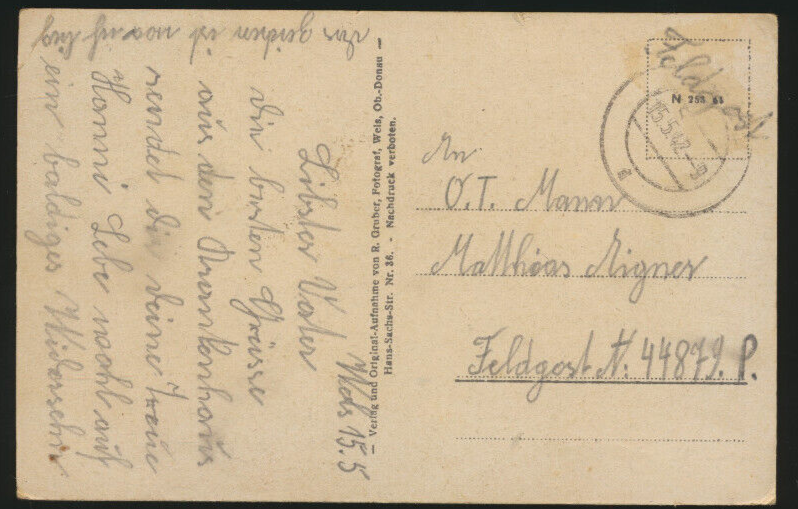 Wels 15.5
Liebster Vater
die besten Grüsse
aus den Krankenhaus
sendet dir deine treue
Hanni Lebe wohl auf
ein baldiges Widersehn
ist noch
— Verlag und Original-Aufnahme von R. Gruber, Fotograf, Wels, Ob.-Donau —
Hans-Sachs-Str. Nr. 36. - Nachdruck verboten.
Feldpost
N 253 61
15.5.42
An
O.T. Mann
Matthias Aigner
Feldpost N: 44879. P.